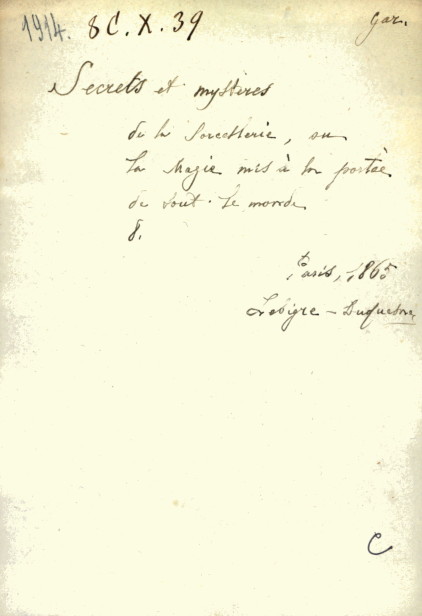 1914. 8C.X.39 gar.
Secrets et mystères
de la Sorcellerie, ou
la Magie mis à la portée
de tout le monde
8.
Paris, 1865
Lebigre-Duquesne
C